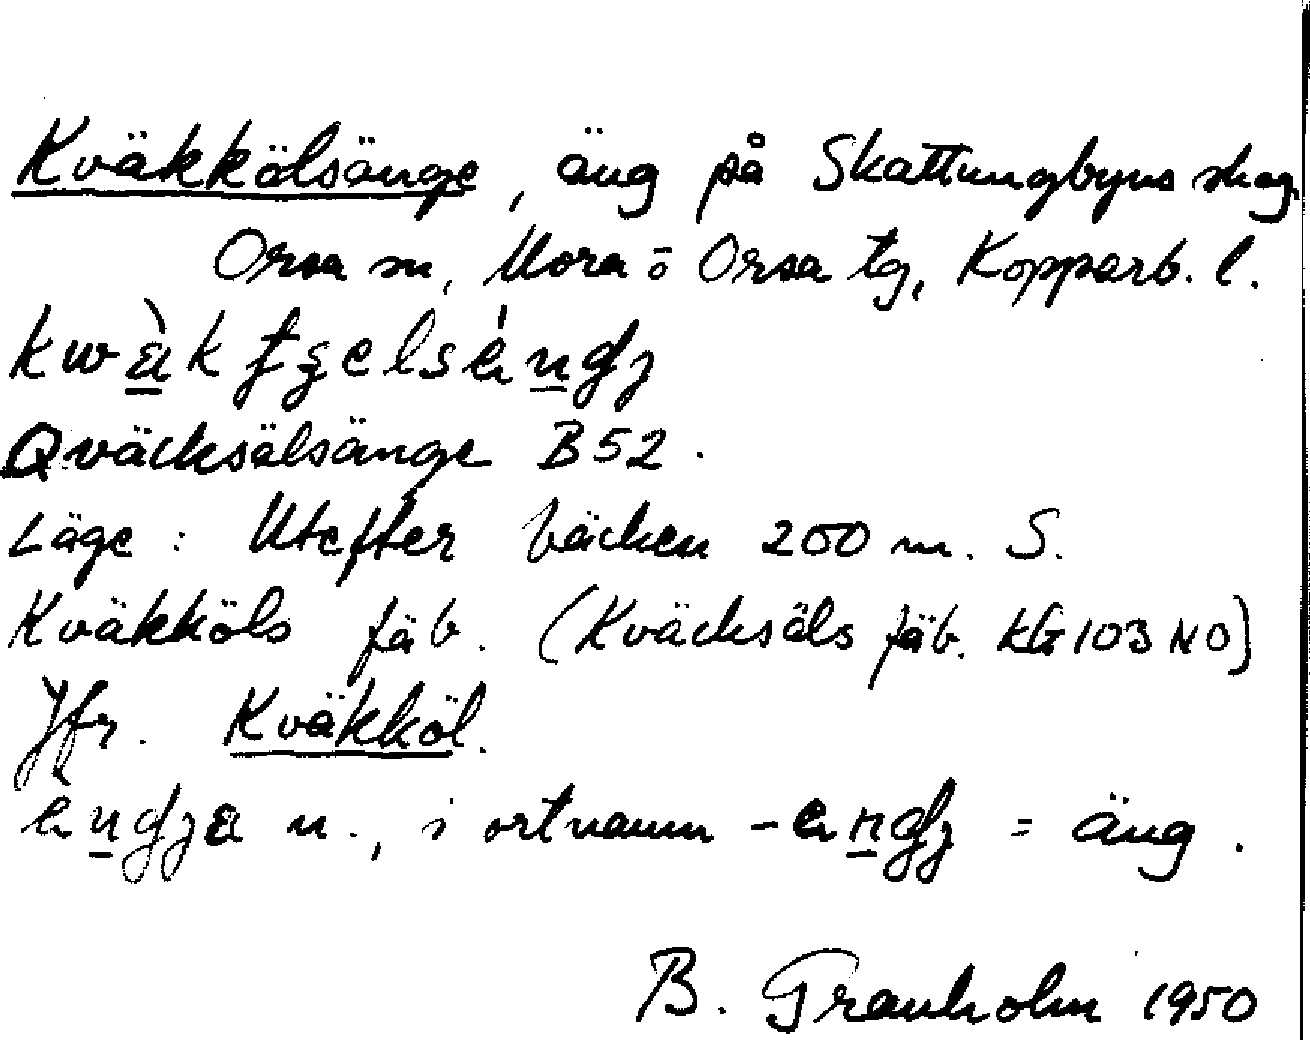 Kväkkölsänge, äng på Skattungbyns skog
Orsa sn, Mora o Orsa tg, Kopparb. l.
Qväcksälsänge B52.
Läge: Utefter bäcken 200 m. S.
Kväkköls fäb. (Kväcksäls fäb. KG103 NO)
Jfr. Kväkköl.
n., i ortnamn = äng.
B. Granholm 1950